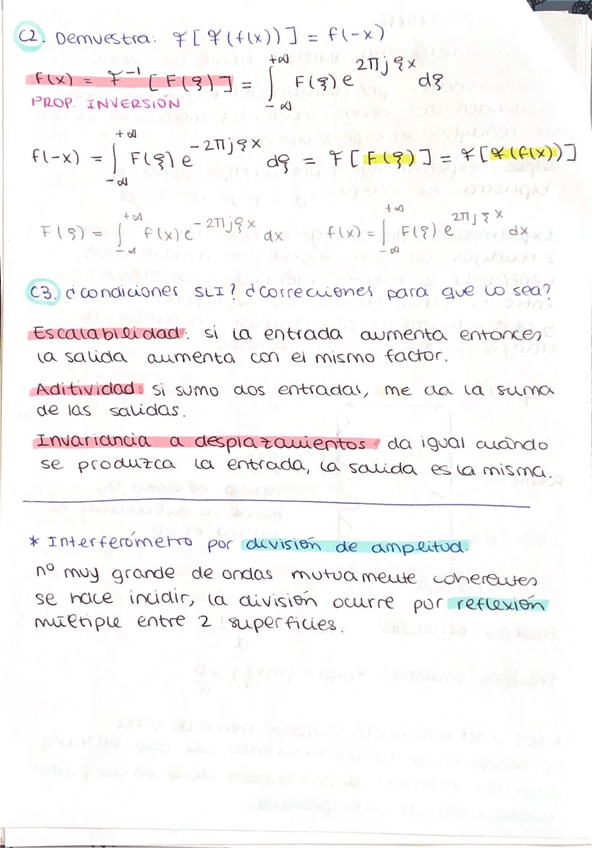 C2. Demuestra: F[F(f(x))] = f(-x)
f(x) = F⁻¹[F(ξ)] = ∫_{-∞}^{+∞} F(ξ) e^{2πjξx} dξ
PROP. INVERSIÓN
f(-x) = ∫_{-∞}^{+∞} F(ξ) e^{-2πjξx} dξ = F[F(ξ)] = F[F(f(x))]
F(ξ) = ∫_{-∞}^{+∞} f(x) e^{-2πjξx} dx f(x) = ∫_{-∞}^{+∞} F(ξ) e^{2πjξx} dx
C3. ¿condiciones SLI? ¿correcciones para que lo sea?
Escalabilidad: si la entrada aumenta entonces
la salida aumenta con el mismo factor.
Aditividad: si sumo dos entradas, me da la suma
de las salidas.
Invariancia a desplazamientos: da igual cuándo
se produzca la entrada, la salida es la misma.
* Interferómetro por división de amplitud.
nº muy grande de ondas mutuamente coherentes
se hace incidir, la división ocurre por reflexión
múltiple entre 2 superficies.